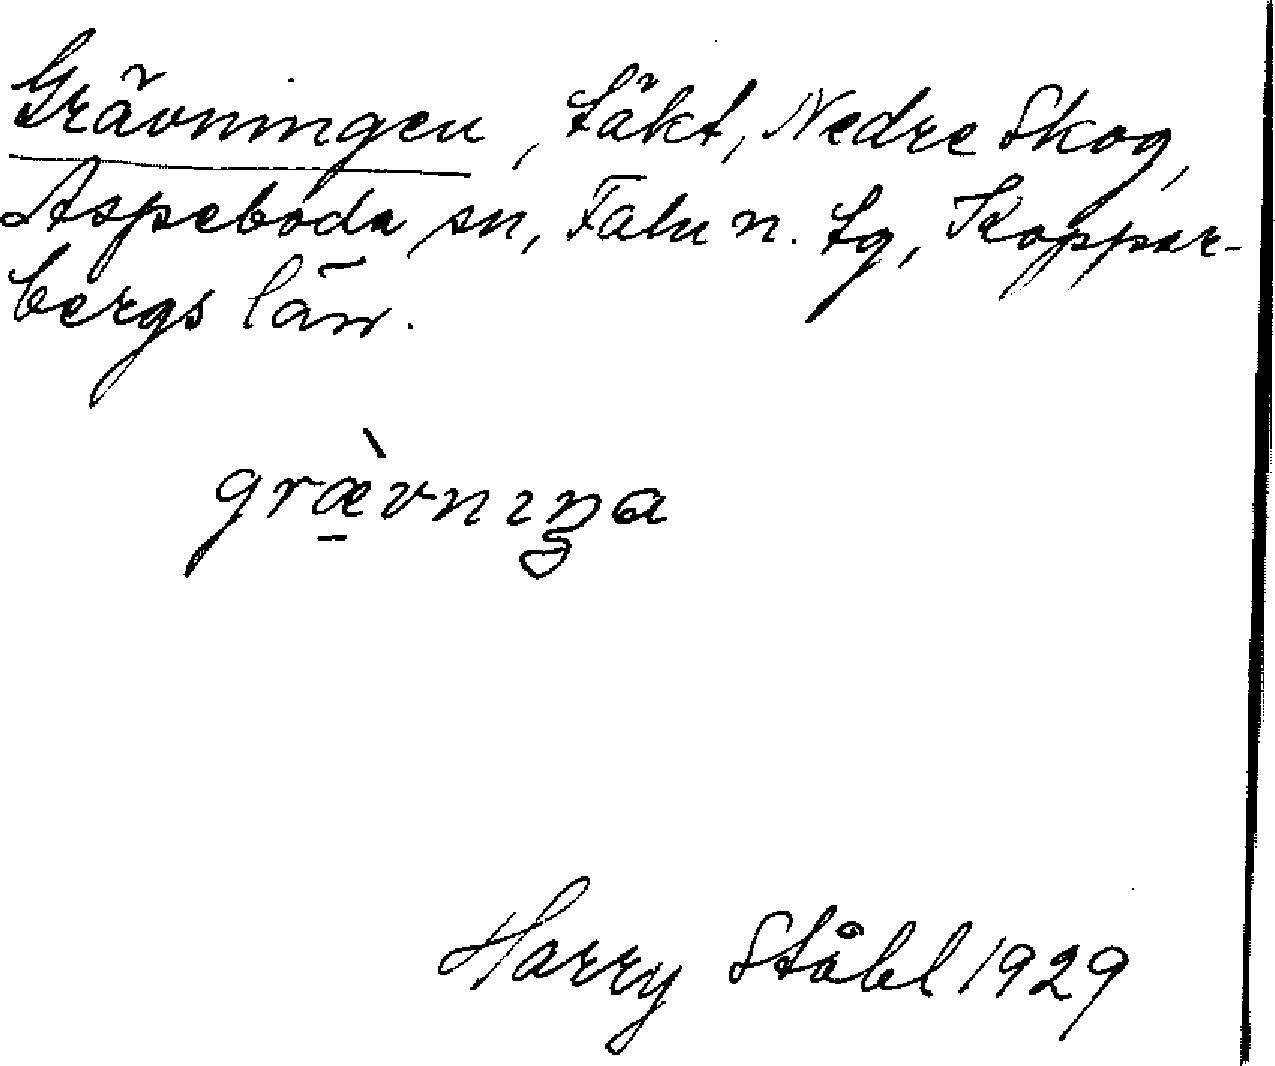 Grävningen, täkt, Nedre Skog,
Aspeboda sn, Falu n. tg, Koppar-
bergs län.
græ̱̀vnıŋa
Harry Ståhl 1929